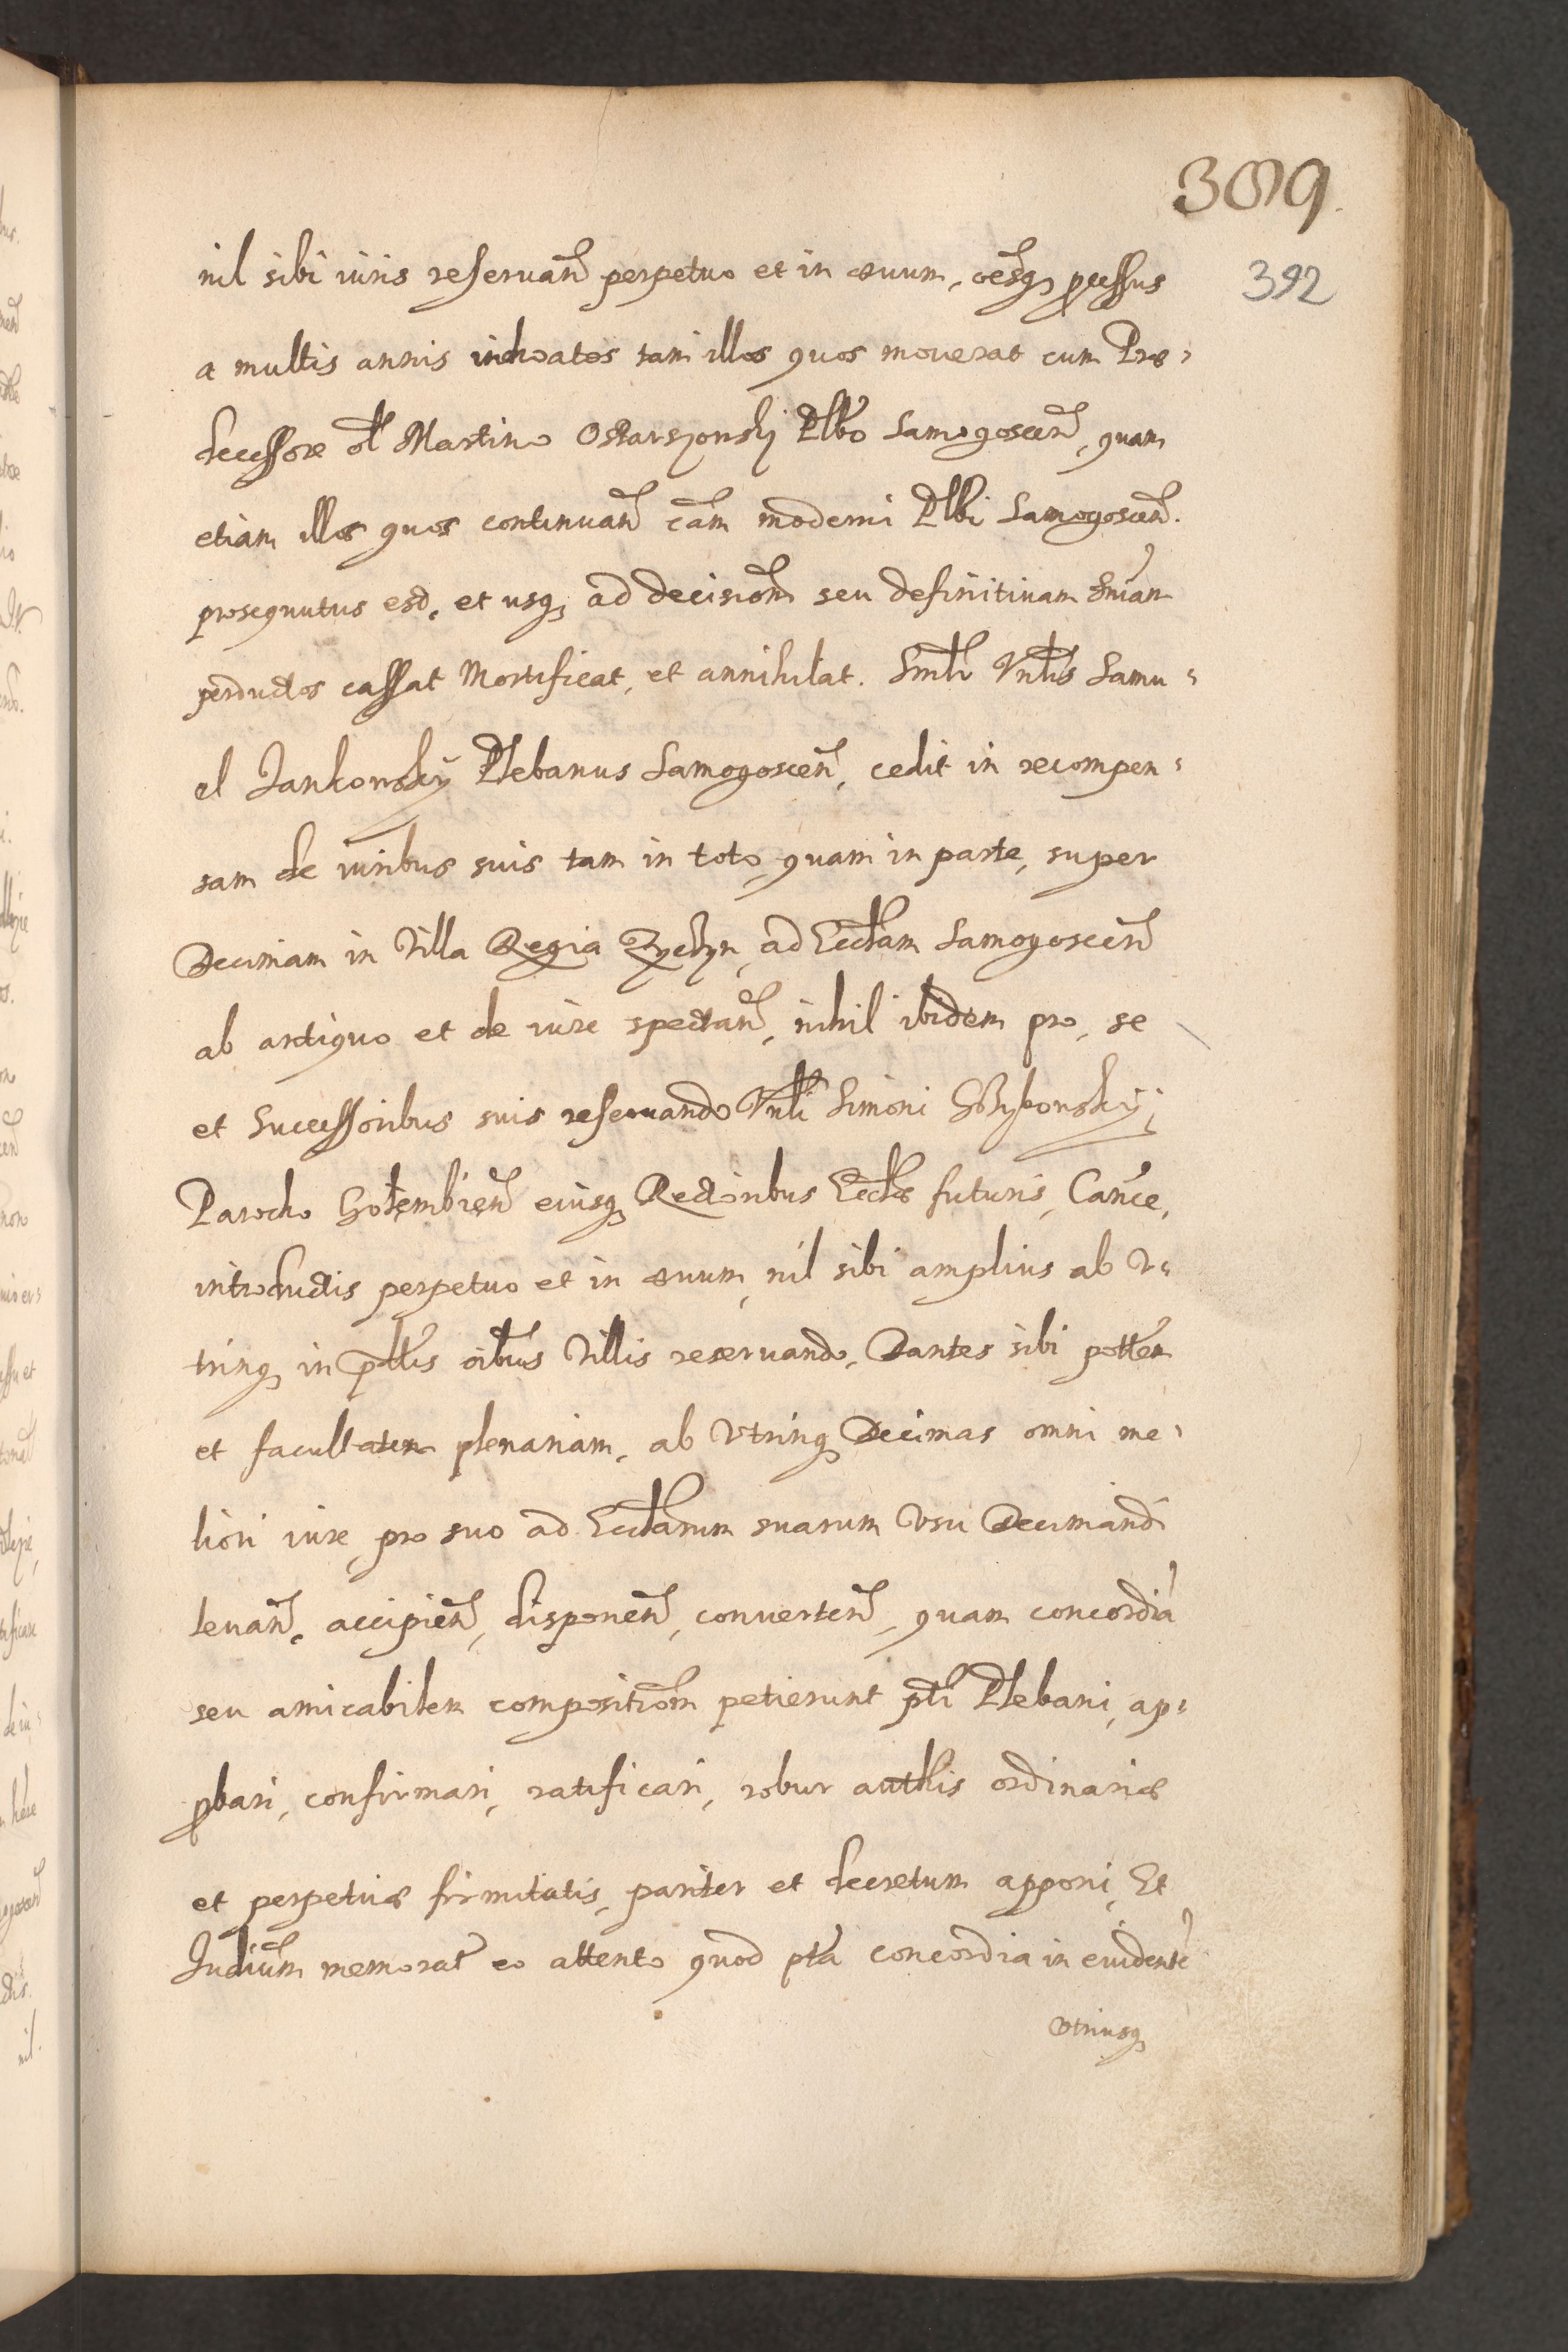 309.
392
nil sibi iuris reseruañ perpetuo et in æuum, oesq₃ pcessus
a multis annis inchoatos tam illos quos mouerat cum Præ-
decessore ol Martino Plbo Samogoscen̄, quam
etiam illos quos continuañ cām moderni Plbi Samogoscen̄.
prosequutus est, et usq₃ ad decisiōm seu definitiuam sniam
perductos cassat Mortificat, et annihilat. Smlr Vnlis Samu-
el Jankowsky Plebanus Samogoscen̄, cedit in recompen-
sam de iuribus suis tam in toto, quam in parte, super
Decimam in Villa Regia Zychyn, ad Ecctam Samogoscen̄
ab antiquo et de iure spectañ, nihil ibidem pro, se
et Successoribus suis reseruando Vnli Simoni
Parocho Gołembien̄ eiusq₃ Rectoribus Ecctæ futuris, Canće,
introductis perpetuo et in æuum, nil sibi amplius ab v-
trinq₃ in pttis oibus Villis reseruando, Dantes sibi pottem
et facultatem plenariam, ab vtrinq₃ Decimas omni me-
liori iure pro suo ad Ecctarum suarum vsu Decimandi
leuañ, accipien̄, disponen̄, conuerten̄, quam concordiā
seu amicabilem compositiōm petierunt pti Plebani, ap-
pbari, confirmari, ratificari, robur authtis ordinariæ
et perpetuæ firmitatis, pariter et decretum apponi, Et
Judiūm memorat̄ eo attento quod pta concordia in euidentē
vtriusq₃